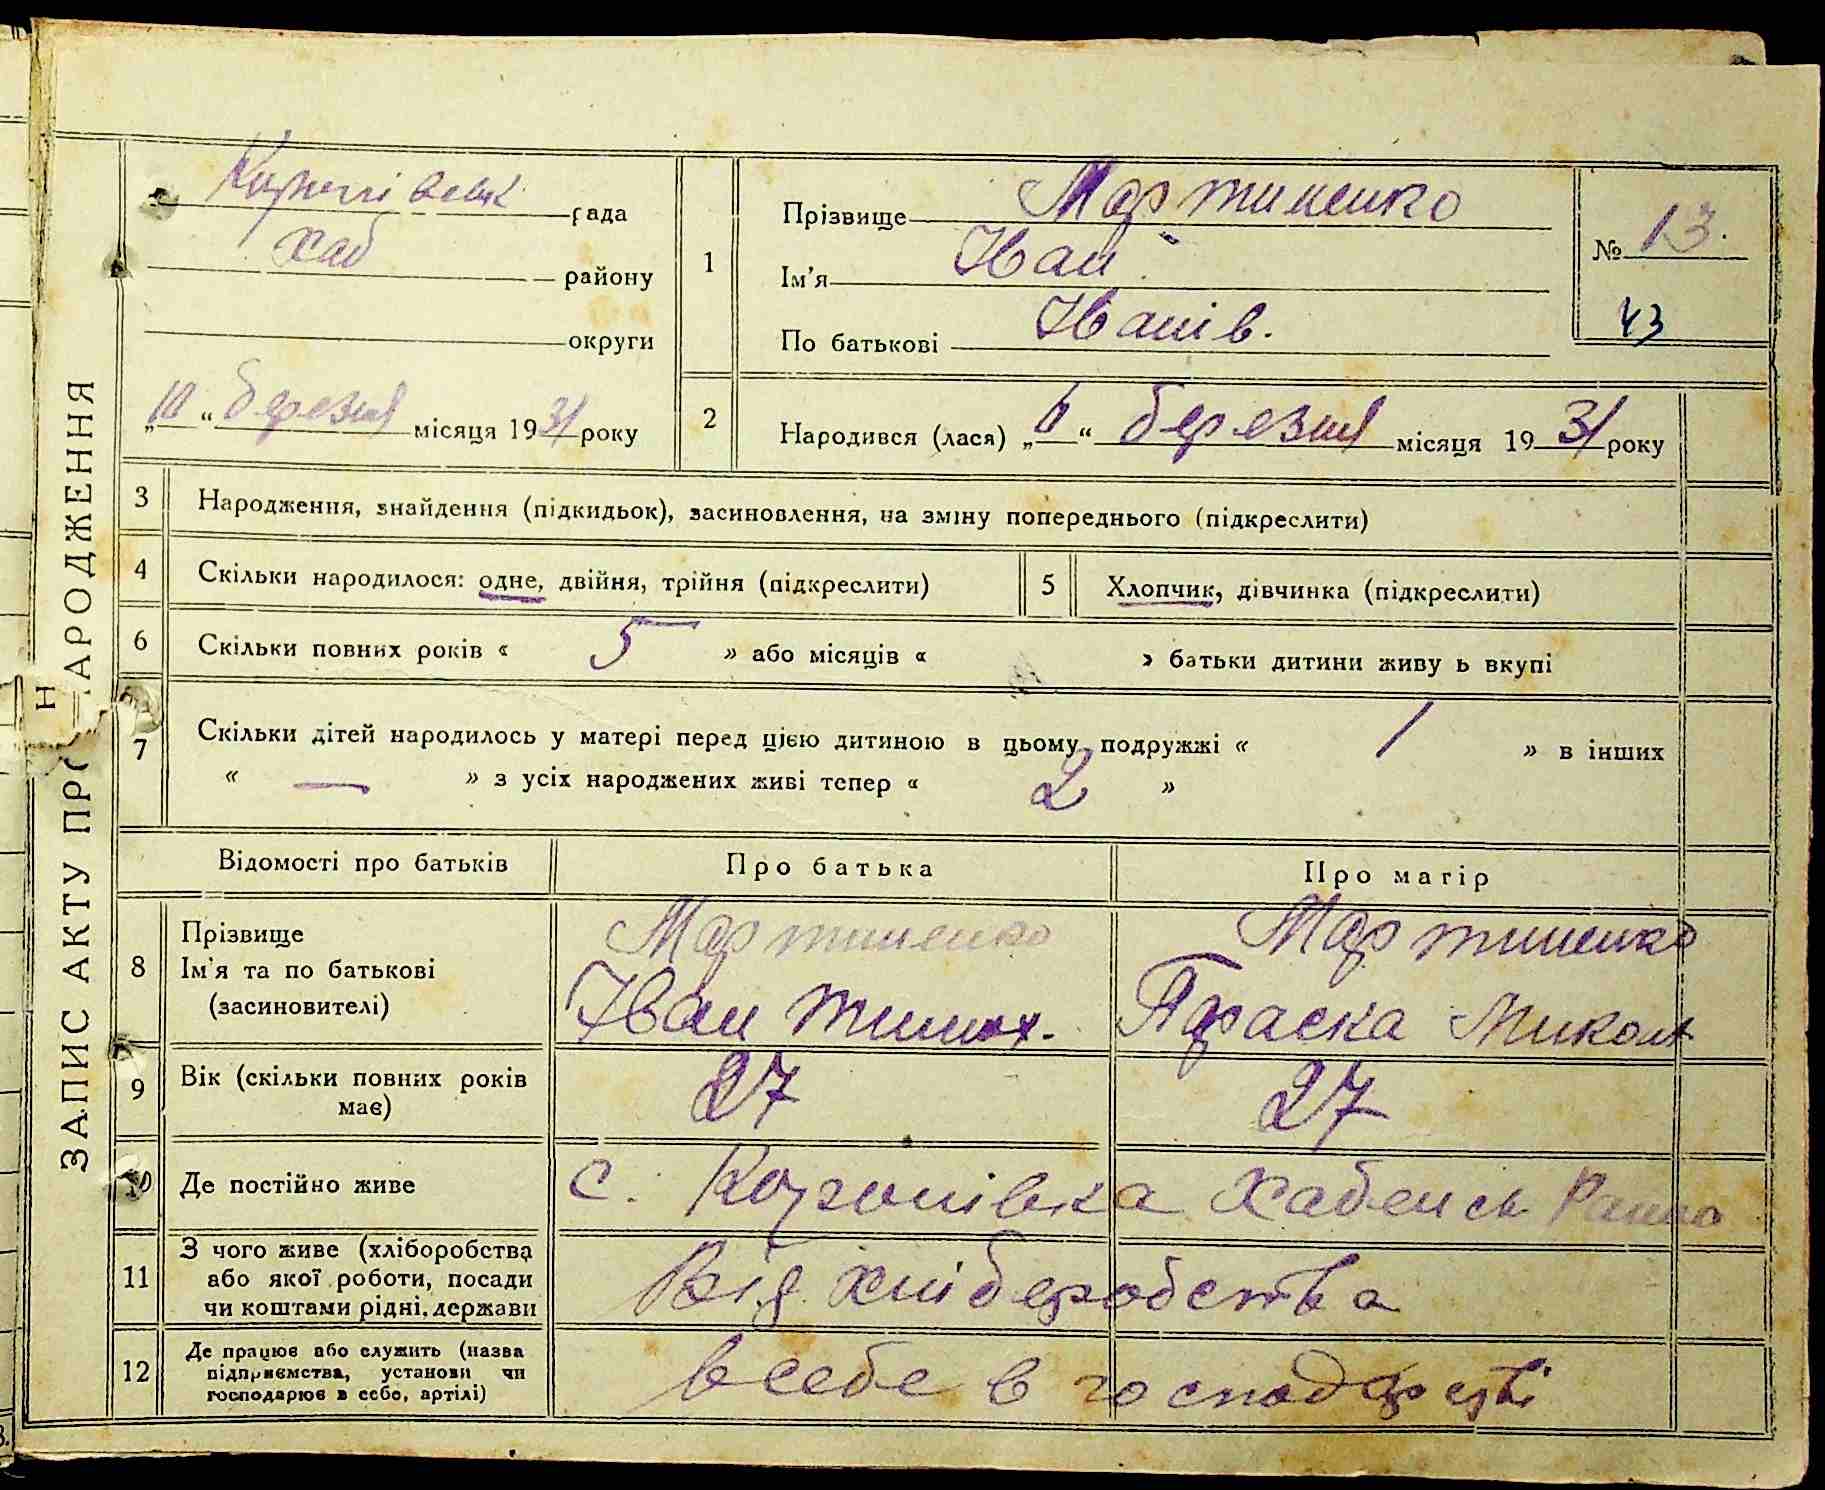 ЗАПИС АКТУ ПРО НАРОДЖЕННЯ
рада
Хаб району
округи
„10“ березня місяця 1931 року
1
Прізвище Мартиненко
Ім'я Іван
По батькові Іванів.
№ 13.
43
2
Народився (лася) „6“ березня місяця 1931 року
3 Народження, знайдення (підкидьок), засиновлення, на зміну попереднього (підкреслити)
4 Скільки народилося: одне, двійня, трійня (підкреслити)
5 Хлопчик, дівчинка (підкреслити)
6 Скільки повних років « 5 » або місяців « » батьки дитини живу ь вкупі
7 Скільки дітей народилось у матері перед цією дитиною в цьому подружжі « 1 » в інших
« — » з усіх народжених живі тепер « 2 »
Відомості про батьків Про батька Про матір
8 Прізвище
Ім'я та по батькові
(засиновителі)
Мартиненко
Іван Тимох.
Мартиненко
Параска Микол
9 Вік (скільки повних років
має)
27 27
10 Де постійно живе с. Хабенськ
11 З чого живе (хліборобства
або якої роботи, посади
чи коштами рідні, держави
Від хліборобства
12 Де працює або служить (назва
підприємства, установи чи
господарює в себе, артілі)
в себе в господарстві